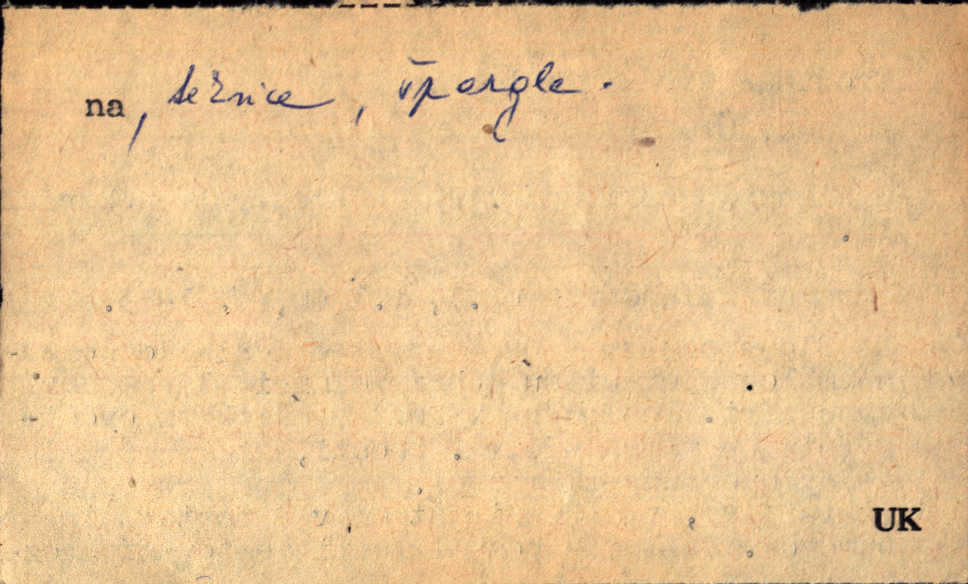 na, težnice, špargle.
UK